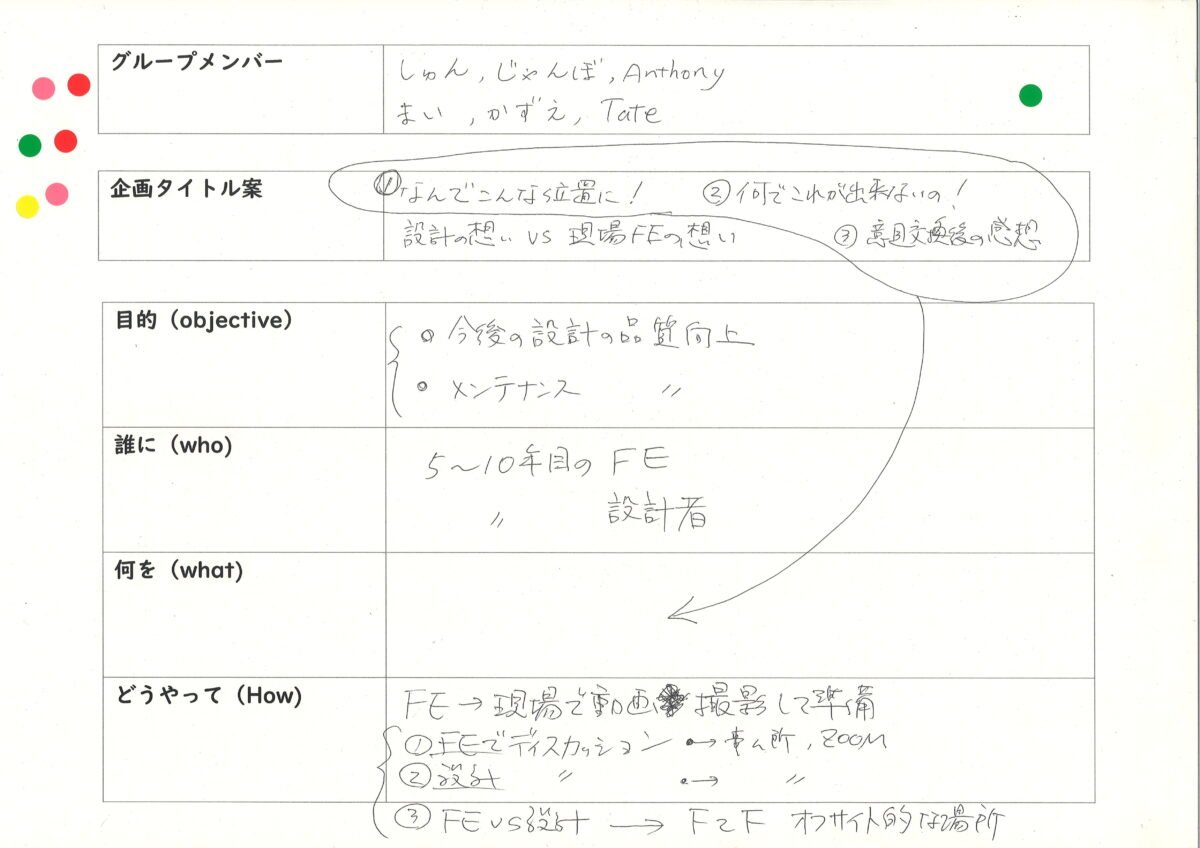 グループメンバー
しゅん, じゃんぼ, Anthony
まい , かずえ, Tate
企画タイトル案
①なんでこんな位置に! ②何でこれが出来ないの!
設計の想い VS 現場FEの想い ③意見交換後の感想
目的（objective）
○ 今後の設計の品質向上
○ メンテナンス 〃
誰に（who)
5〜10年目の FE
〃 設計者
何を（what)
どうやって（How)
FE → 現場で動画 撮影して準備
① FEでディスカッション → 事ム所, ZOOM
② 設計 〃 → 〃
③ FE vs 設計 → FとF オフサイト的な場所